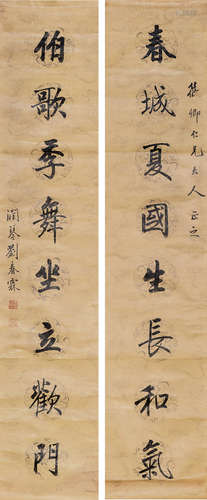 春城夏國生長和氣
卿仁兄大人正之
伯歌季舞坐立歡門
潤琴劉春霖